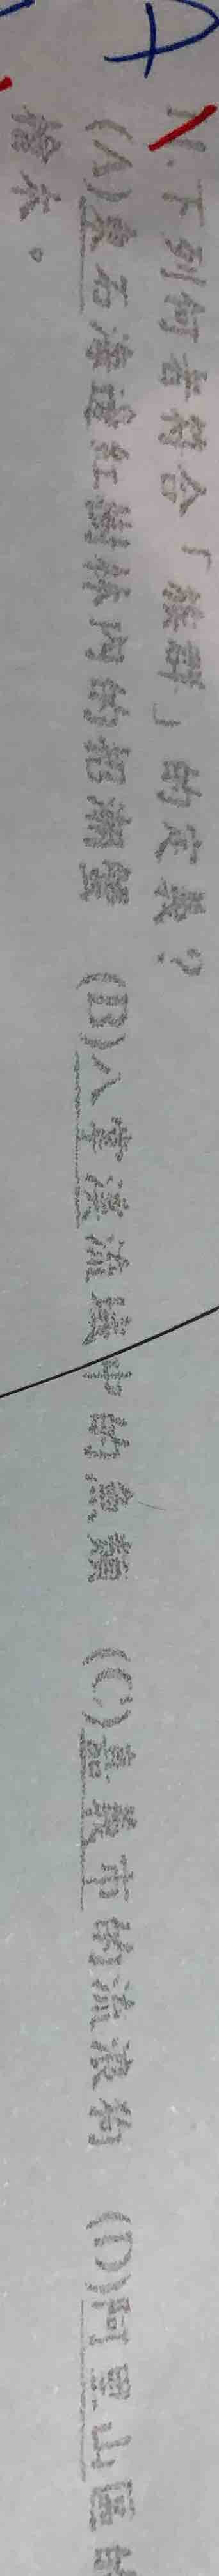 下列何者符合「族群」的定義？
(A)東石海邊紅樹林內的招潮蟹 (B)八掌溪流域中的魚類 (C)嘉義市的流浪狗 (D)阿里山區的
檜木。